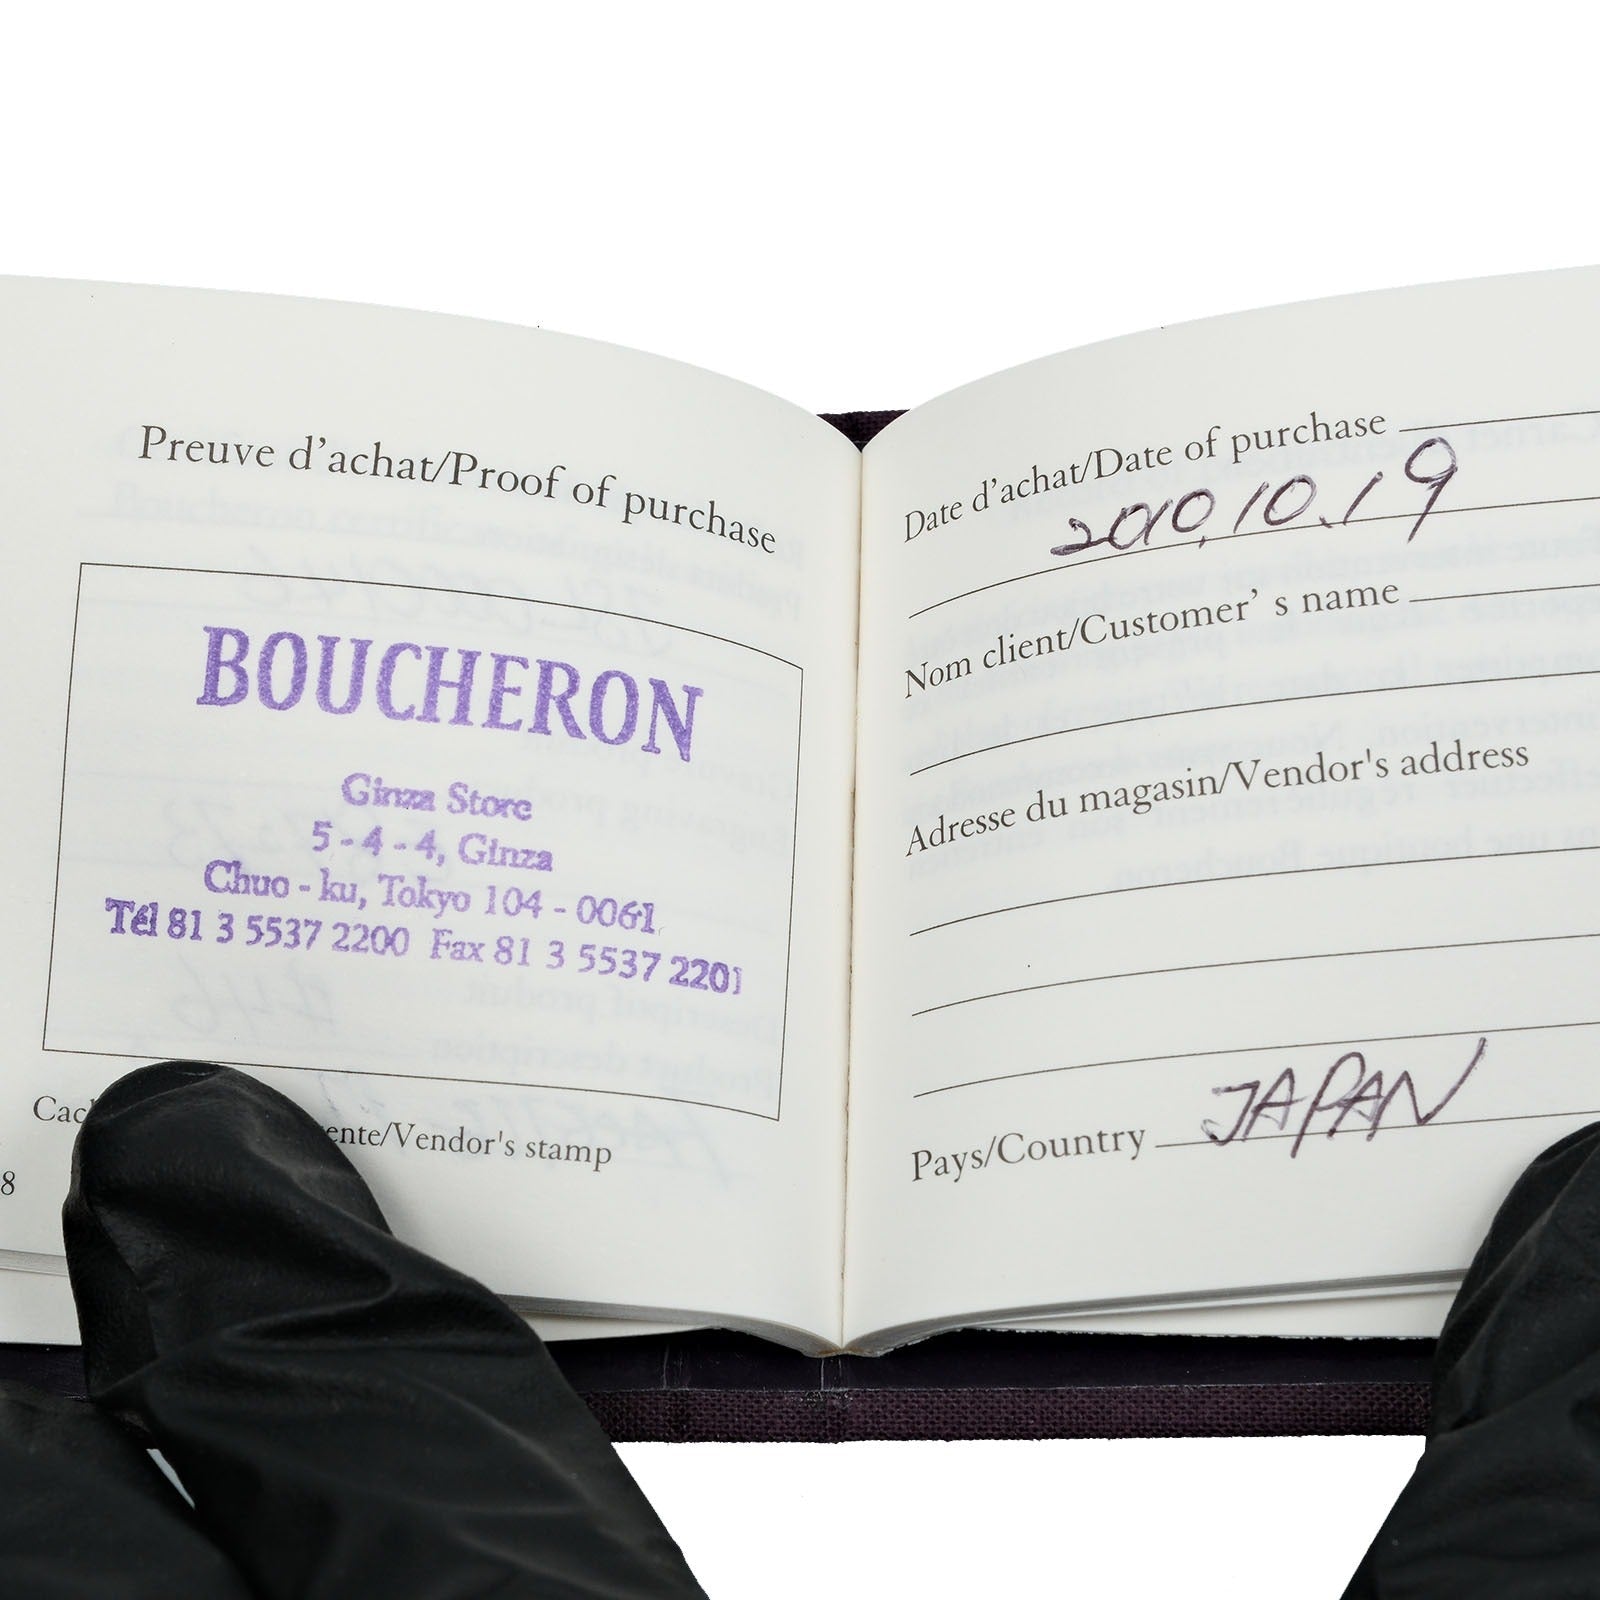 Preuve d'achat/Proof of purchase
BOUCHERON
Ginza Store
5 - 4 - 4, Ginza
Chuo - ku, Tokyo 104 - 0061
Tél 81 3 5537 2200 Fax 81 3 5537 2201
/Vendor's stamp
8
Date d'achat/Date of purchase
2010.10.19
Nom client/Customer' s name
Adresse du magasin/Vendor's address
Pays/Country JAPAN